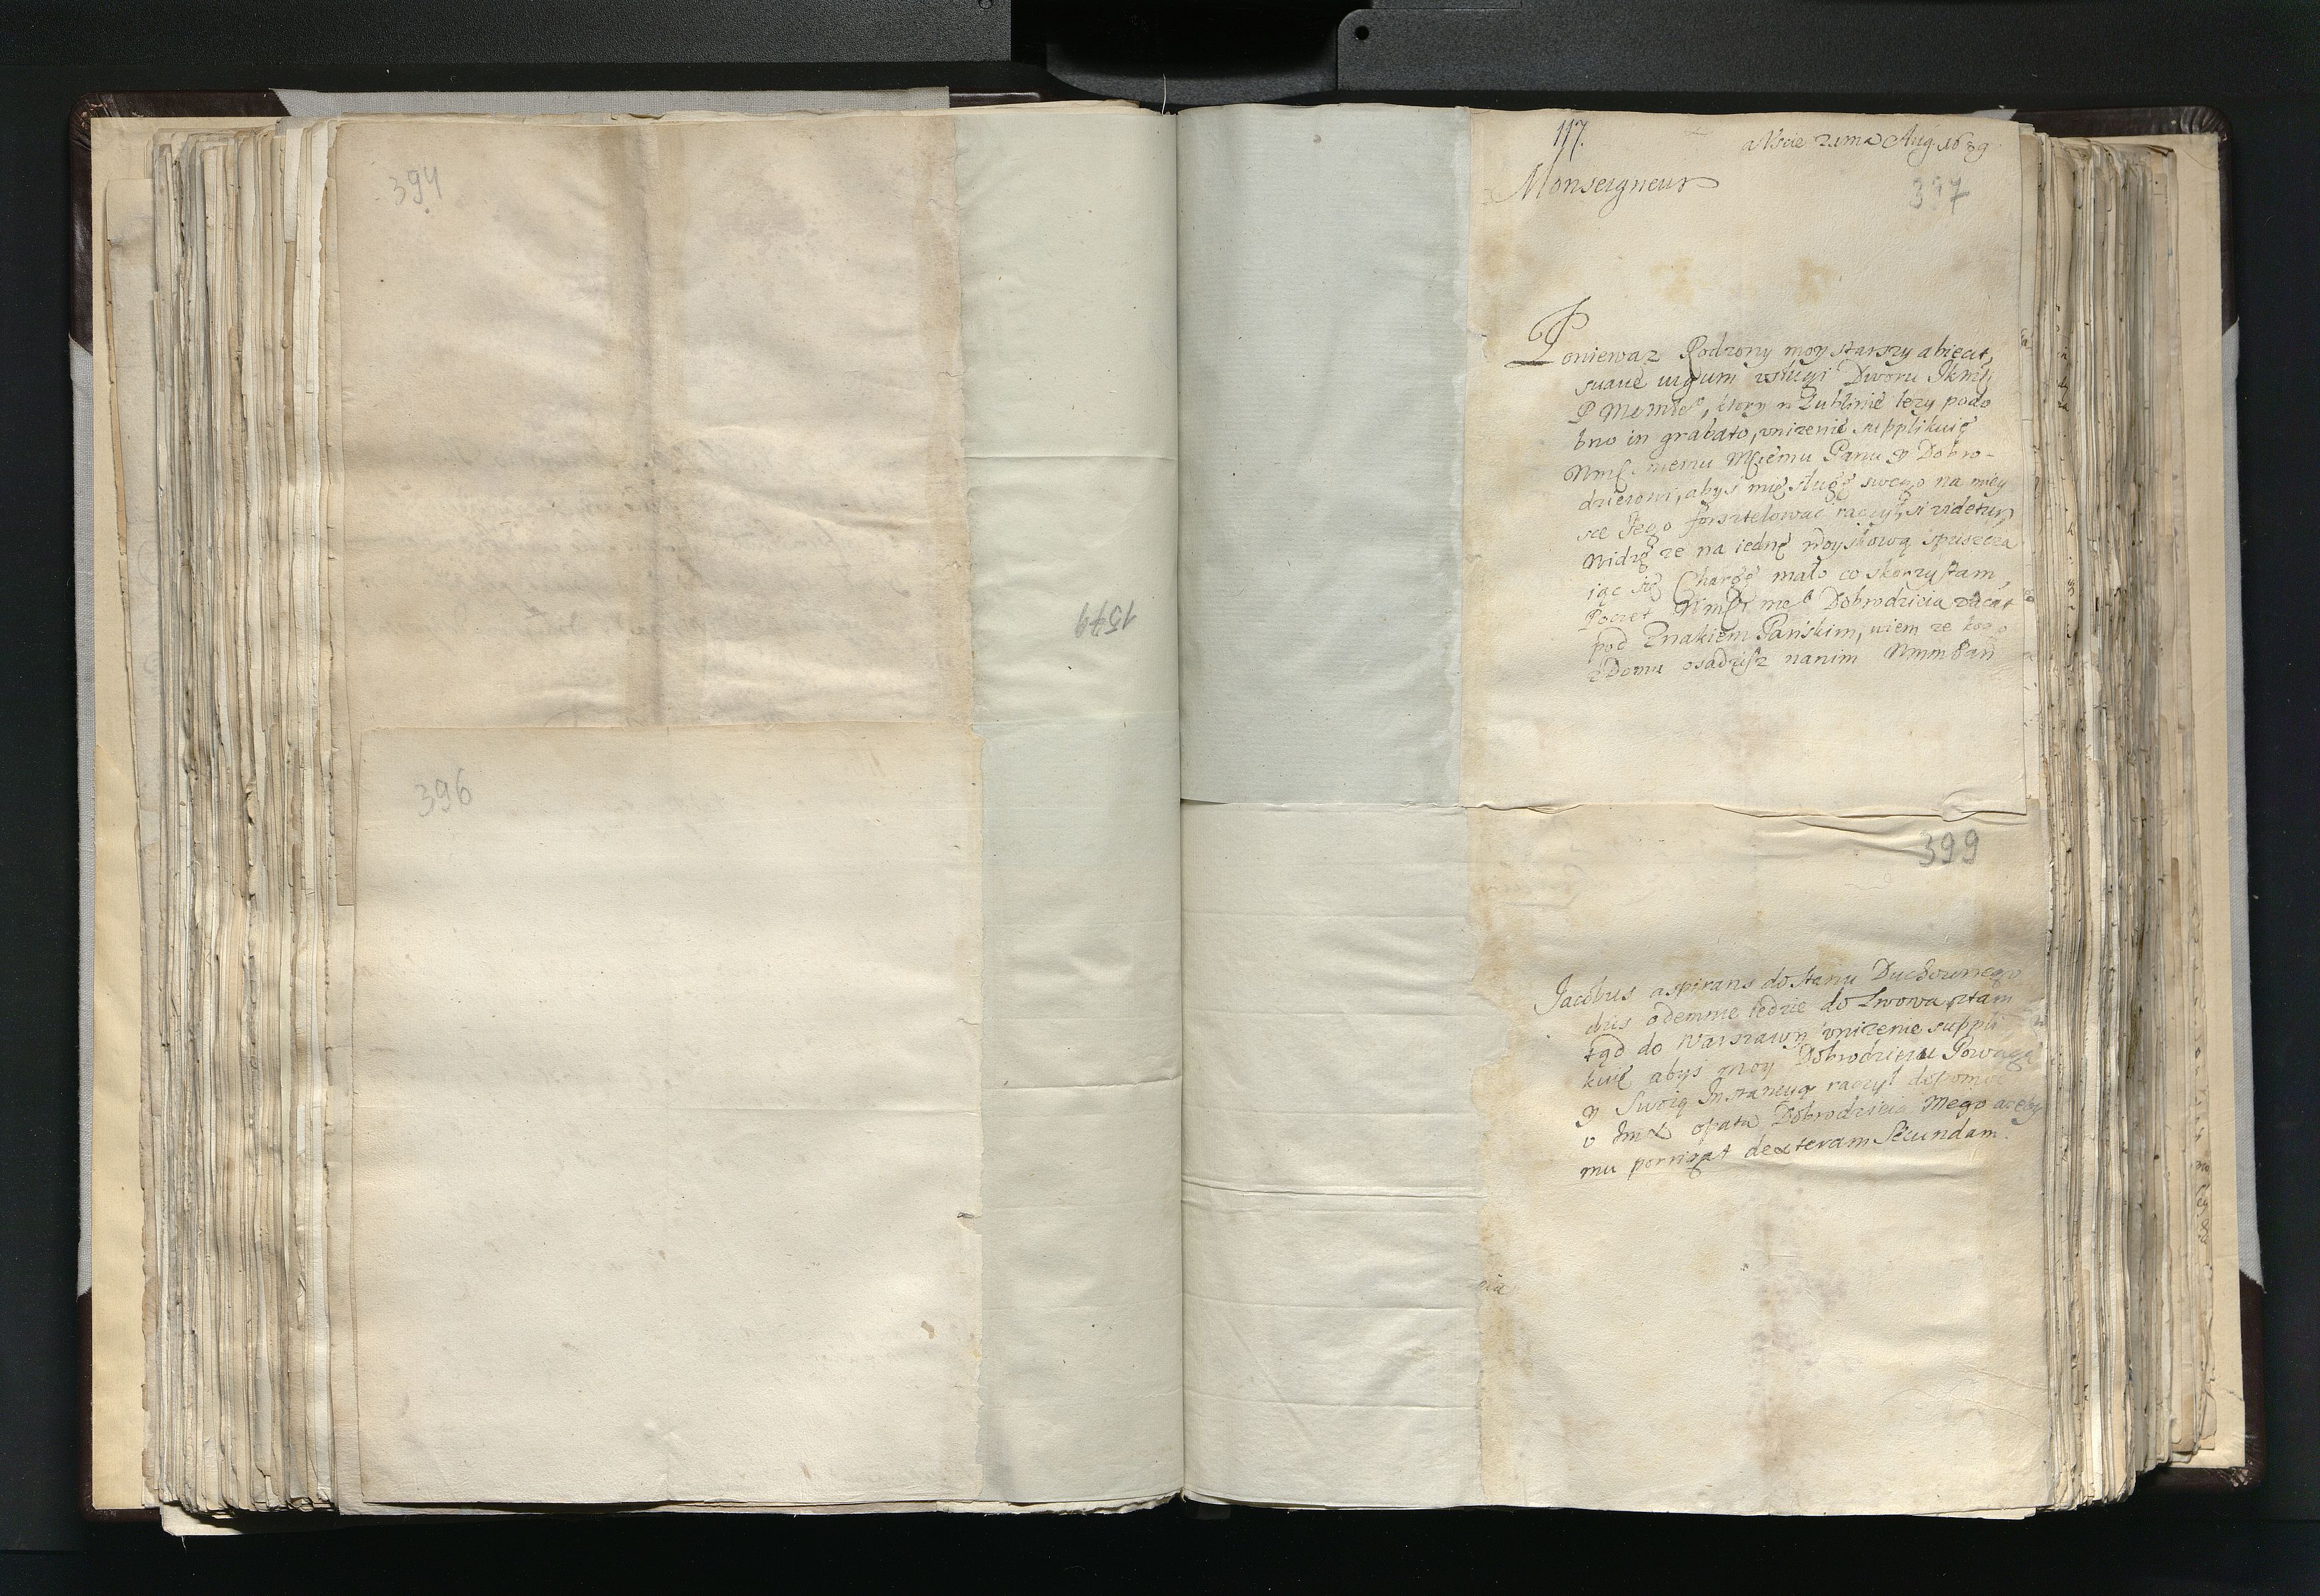 394
396
1579
117.
Aug. 1689
Monseigneur
397
Poniewaz Rodzony moy starszy abiecit,
suave iugum usługi Dworu Jkmści
P , ktory w Lublinie lezy podo
bno in grabato, unizenie supplikuię
Wmść memu Mściemu Panu y Dobro-
dzieiowi, abyś mię sługę swego na miey
sce Jego forsztelować raczył, si videtur,
Widzę ze na iednę woyskową spuszcza
iąc się Chargę mało co skorzystam,
Poczet Wmści me° Dobrodzieia vacat
pod Znakiem Pańskim, wiem ze kogo
z Domu osadzisz nanim Wmm Pan
399
Jacobus aspirans do stanu Duchownego
dziś odemnie iedzie do Lwowa, ztam
tąd do Warszawy unizenie suppli
kuię abys moy Dobrodzieiu Powagą
y Swoią Instancyą raczył dopomoc
u Jmci opata Dobrodzieia Mego azeby
mu porrigat dexteram Secundam.